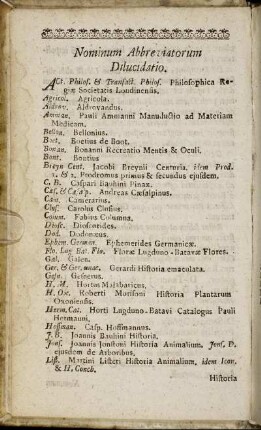 Nominum Abbreviatorum
Dilucidatio.
Act. Philos. & Transact. Philos. Philosophica Re-
giæ Societatis Londinensis.
Agricol. Agricola.
Aldrov. Aldrovandus.
Amman. Pauli Ammanni Manuductio ad Materiam
Medicam.
Bellon. Bellonius.
Boet. Boetius de Boot.
Bonan. Bonanni Recreatio Mentis & Oculi.
Bont. Bontius
Breyn Cent. Jacobi Breynii Centuria, idem Prod.
1. & 2. Prodromus primus & secundus ejusdem.
C. B. Caspari Bauhini Pinax.
Cæs. & Cæsalp. Andreas Cæsalpinus.
Cam. Camerarius.
Clus. Carolus Clusius.
Colum. Fabius Columna.
Diosc. Dioscorides.
Dod. Dodonæus.
Ephem. German. Ephemerides Germanicæ.
Flo. Lug. Bat. Flo. Floræ Lugduno-Batavæ Flores.
Gal. Galen.
Ger. & Ger. emac. Gerardi Historia emaculata.
Gesn. Gesnerus.
H. M. Hortus Malabaricus.
H. Ox. Roberti Morisoni Historia Plantarum
Oxoniensis.
Herm. Cat. Horti Lugduno-Batavi Catalogus Pauli
Hermanni.
Hoffman. Casp. Hoffmannus.
J. B. Joannis Bauhini Historia.
Jons. Joannis Jonstoni Historia Animalium, Jons. D.
ejusdem de Arboribus.
List. Martini Listeri Historia Animalium, idem Jon,
& H. Conch.
Historia